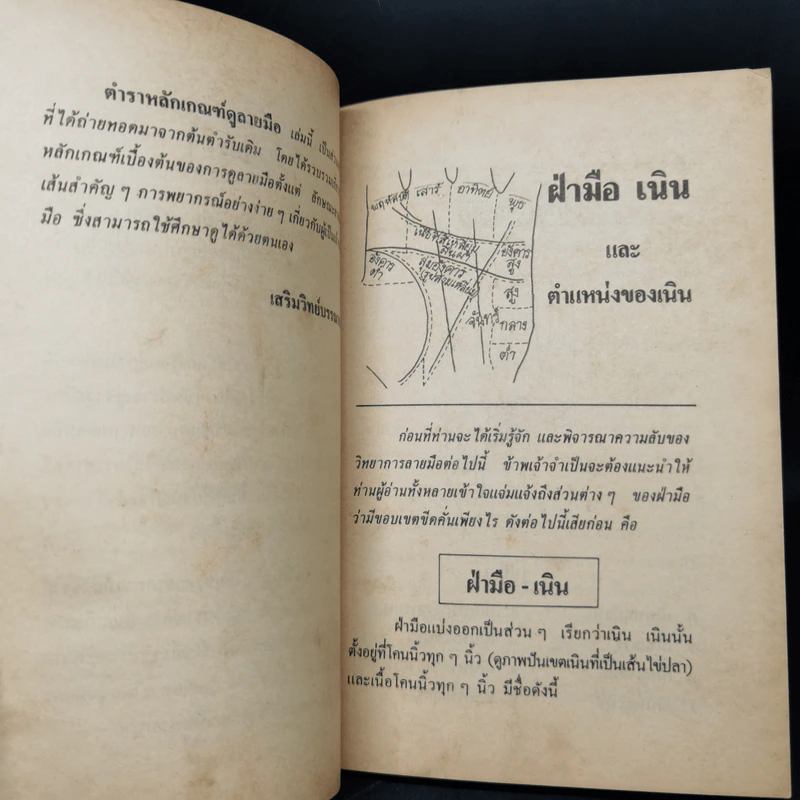 ตำราหลักเกณฑ์ดูลายมือ เล่มนี้
ที่ได้ถ่ายทอดมาจากต้นตำรับเดิม โดยได้รวบรวม
หลักเกณฑ์เบื้องต้นของการดูลายมือตั้งแต่
เส้นสำคัญ ๆ การพยากรณ์อย่างง่าย ๆ
มือ ซึ่งสามารถใช้ศึกษาดูได้ด้วยตนเอง
เสริมวิทย์
ฝ่ามือ เนิน
และ
ตำแหน่งของเนิน
พฤหัสบดี เสาร์ อาทิตย์ พุธ
อังคาร
สูง
อังคาร
ต่ำ
สูง
จันทร์ กลาง
ต่ำ
ก่อนที่ท่านจะได้เริ่มรู้จัก และพิจารณาความลับของ
วิทยาการลายมือต่อไปนี้ ข้าพเจ้าจำเป็นจะต้องแนะนำให้
ท่านผู้อ่านทั้งหลายเข้าใจแจ่มแจ้งถึงส่วนต่าง ๆ ของฝ่ามือ
ว่ามีขอบเขตขีดคั่นเพียงไร ดังต่อไปนี้เสียก่อน คือ
ฝ่ามือ - เนิน
ฝ่ามือแบ่งออกเป็นส่วน ๆ เรียกว่าเนิน เนินนั้น
ตั้งอยู่ที่โคนนิ้วทุก ๆ นิ้ว (ดูภาพปันเขตเนินที่เป็นเส้นไข่ปลา)
และเนื้อโคนนิ้วทุก ๆ นิ้ว มีชื่อดังนี้